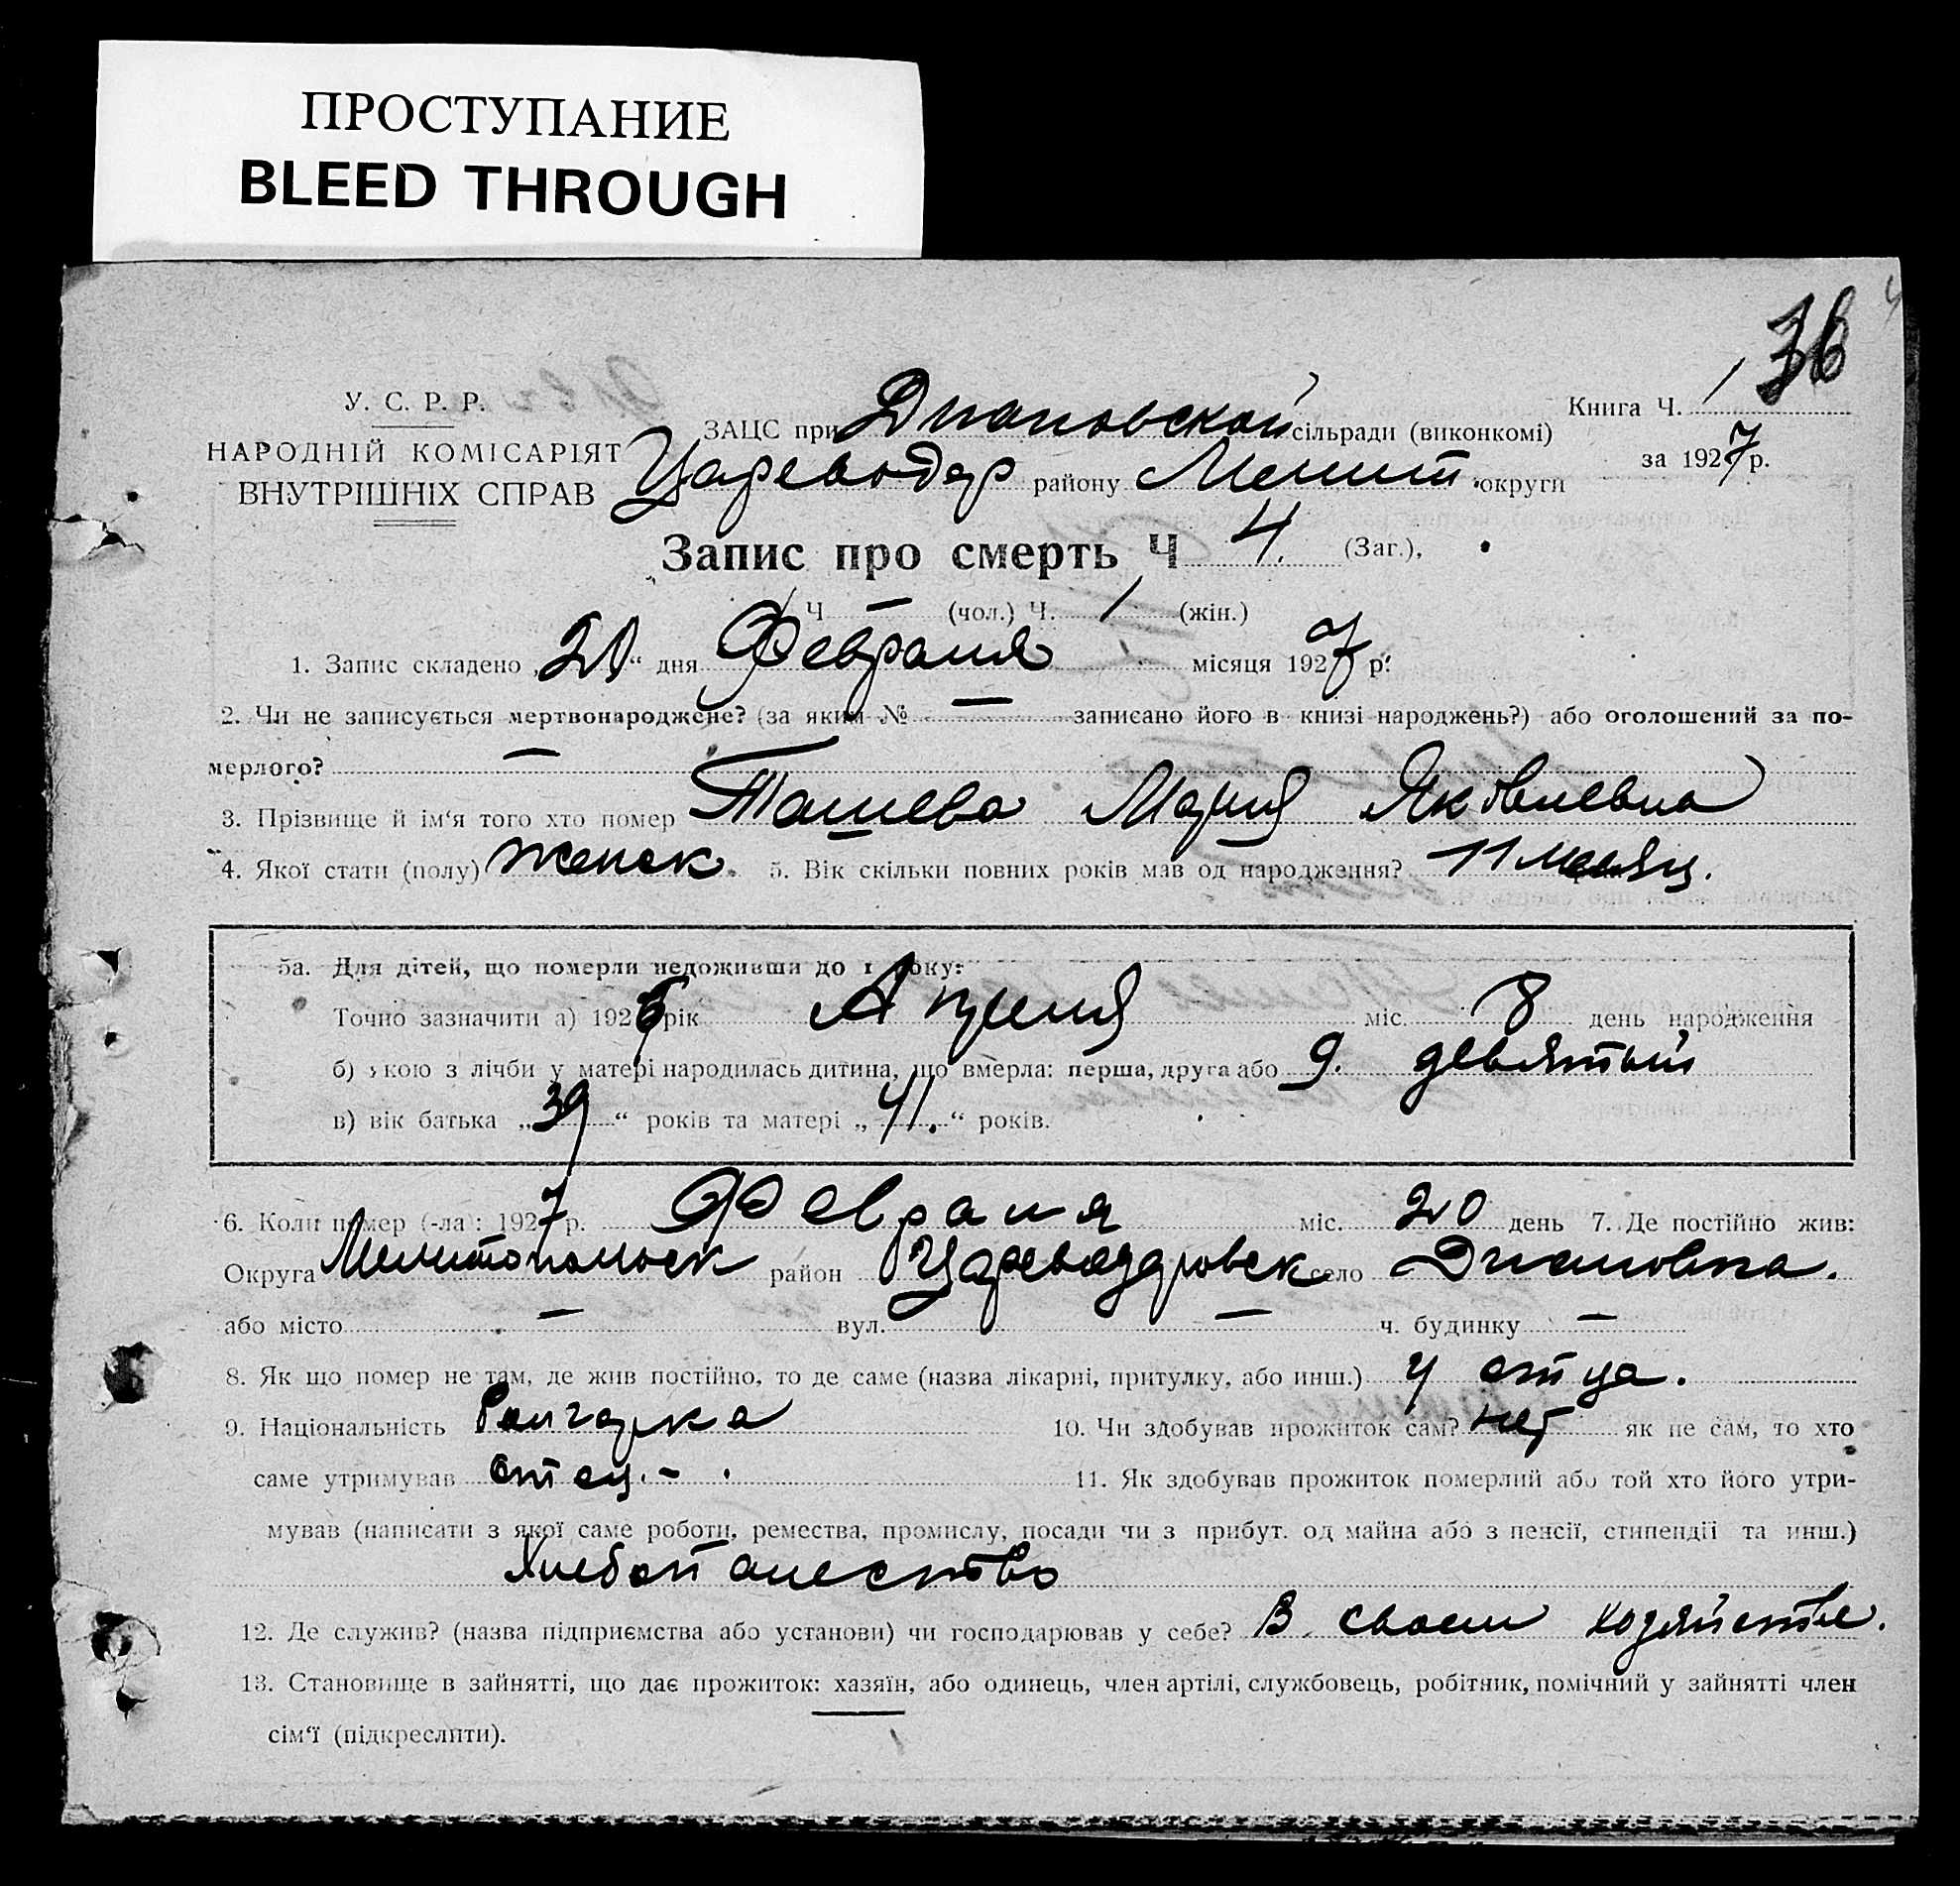 ПРОСТУПАНИЕ
BLEED THROUGH
36
У. С. Р. Р.
НАРОДНІЙ КОМІСАРІЯТ
ВНУТРІШНІХ СПРАВ
Книга Ч. 1
за 1927 р.
ЗАЦС при Диановской сільради (виконкомі)
Цареводар району Мелит. округи
Запис про смерть Ч 4. (Заг.),
Ч — (чол.) Ч. 1 (жін.)
1. Запис складено „20“ дня Февраля місяця 1927 р.
2. Чи не записується мертвонароджене? (за яким № — записано його в книзі народжень?) або оголошений за по-
мерлого? —
3. Прізвище й ім'я того хто помер Ташева Мария Яковлевна
4. Якої стати (полу) женск. 5. Вік скільки повних років мав од народження? 11 месяц.
5а. Для дітей, що померли недоживши до 1 року:
Точно зазначити а) 1926 рік Апреля міс. 8 день народження
б) якою з лічби у матері народилась дитина, що вмерла: перша, друга або 9. девятый
в) вік батька „39“ років та матері „41.“ років.
6. Коли помер (-ла): 1927 р. Февраля міс. 20 день 7. Де постійно жив:
Округа Мелитопольск район Цареводаровск село Диановка.
або місто — вул. — ч. будинку —
8. Як що помер не там, де жив постійно, то де саме (назва лікарні, притулку, або инш.) у отца.
9. Національність Болгарка 10. Чи здобував прожиток сам? нет як не сам, то хто
саме утримував отец. - 11. Як здобував прожиток померлий або той хто його утри-
мував (написати з якої саме роботи, ремества, промислу, посади чи з прибут. од майна або з пенсії, стипендії та инш.)
Хлебопашество
12. Де служив? (назва підприємства або установи) чи господарював у себе? В своем хозяйстве.
13. Становище в зайнятті, що дає прожиток: хазяїн, або одинець, член артілі, службовець, робітник, помічний у зайнятті член
сім'ї (підкреслити).